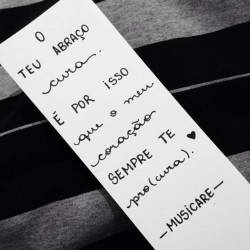 O
TEU ABRAÇO
cura.
É POR ISSO
que o meu
coração
SEMPRE TE
pro(cura). ♥
—MUSICARE—